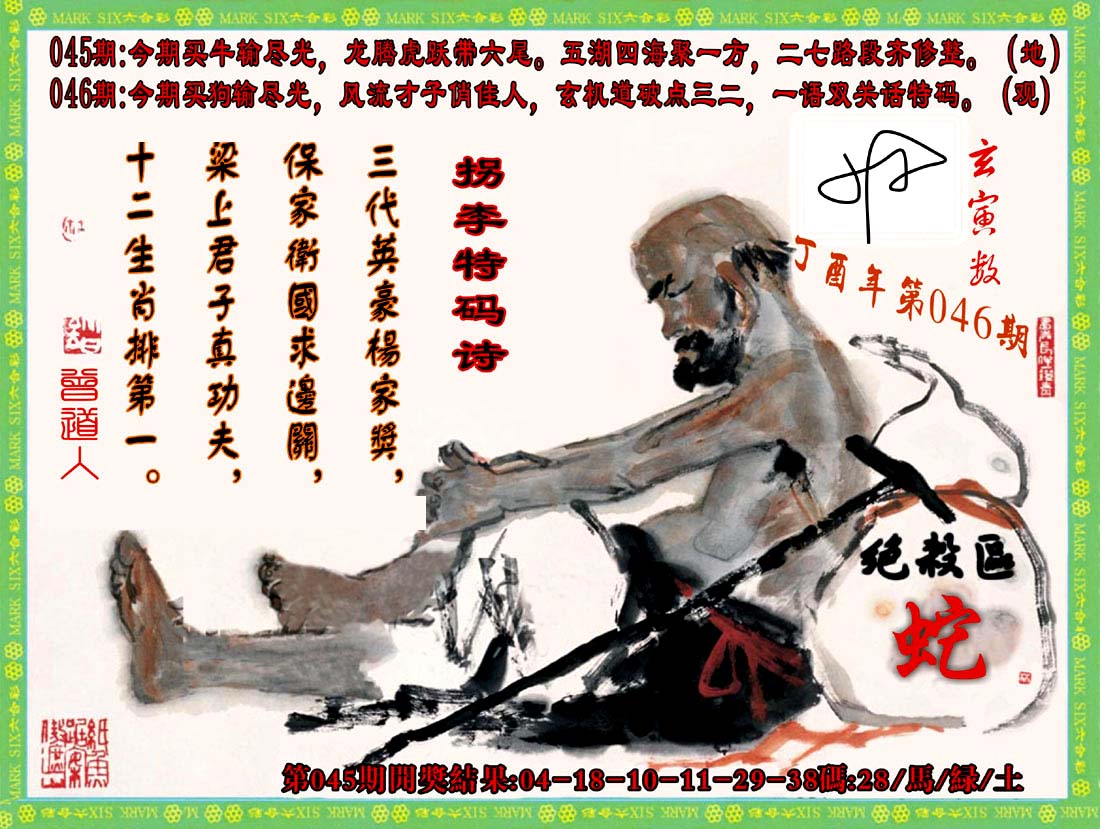 MARK SIX六合彩
045期:今期买牛输尽光，龙腾虎跃带六尾。五湖四海聚一方，二七路段齐修整。(地)
046期:今期买狗输尽光，风流才子俏佳人，玄机道破点三二，一语双关话特码。(观)
玄寅数
丁酉年第046期
拐李特码诗
三代英豪楊家獎，
保家衛國求邊關，
梁上君子真功夫，
十二生肖排第一。
曾道人
绝殺區
蛇
第045期開獎結果:04-18-10-11-29-38碼:28/馬/緑/土